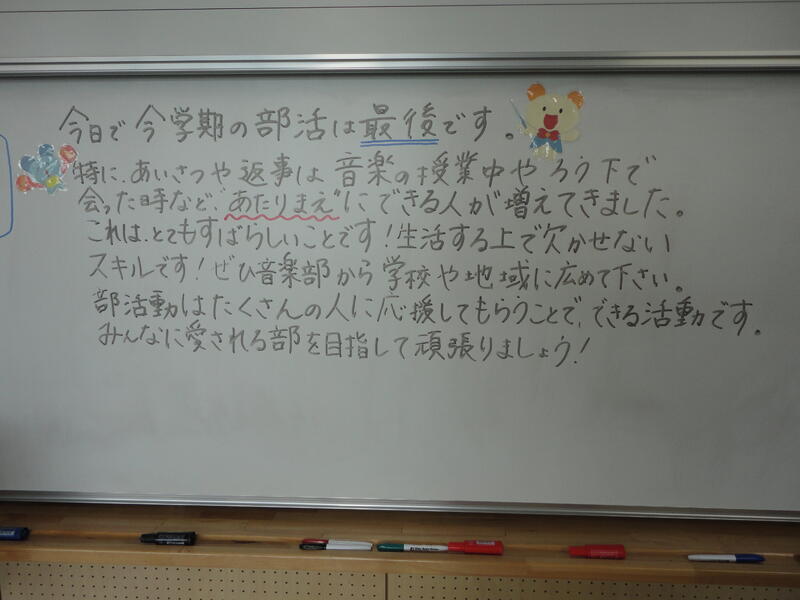 今日で今学期の部活は最後です。
特に、あいさつや返事は音楽の授業中やろう下で
会った時など、"あたりまえ"にできる人が増えてきました。
これは、とてもすばらしいことです！生活する上で欠かせない
スキルです！ぜひ音楽部から学校や地域に広めて下さい。
部活動はたくさんの人に応援してもらうことで、できる活動です。
みんなに愛される部を目指して頑張りましょう！